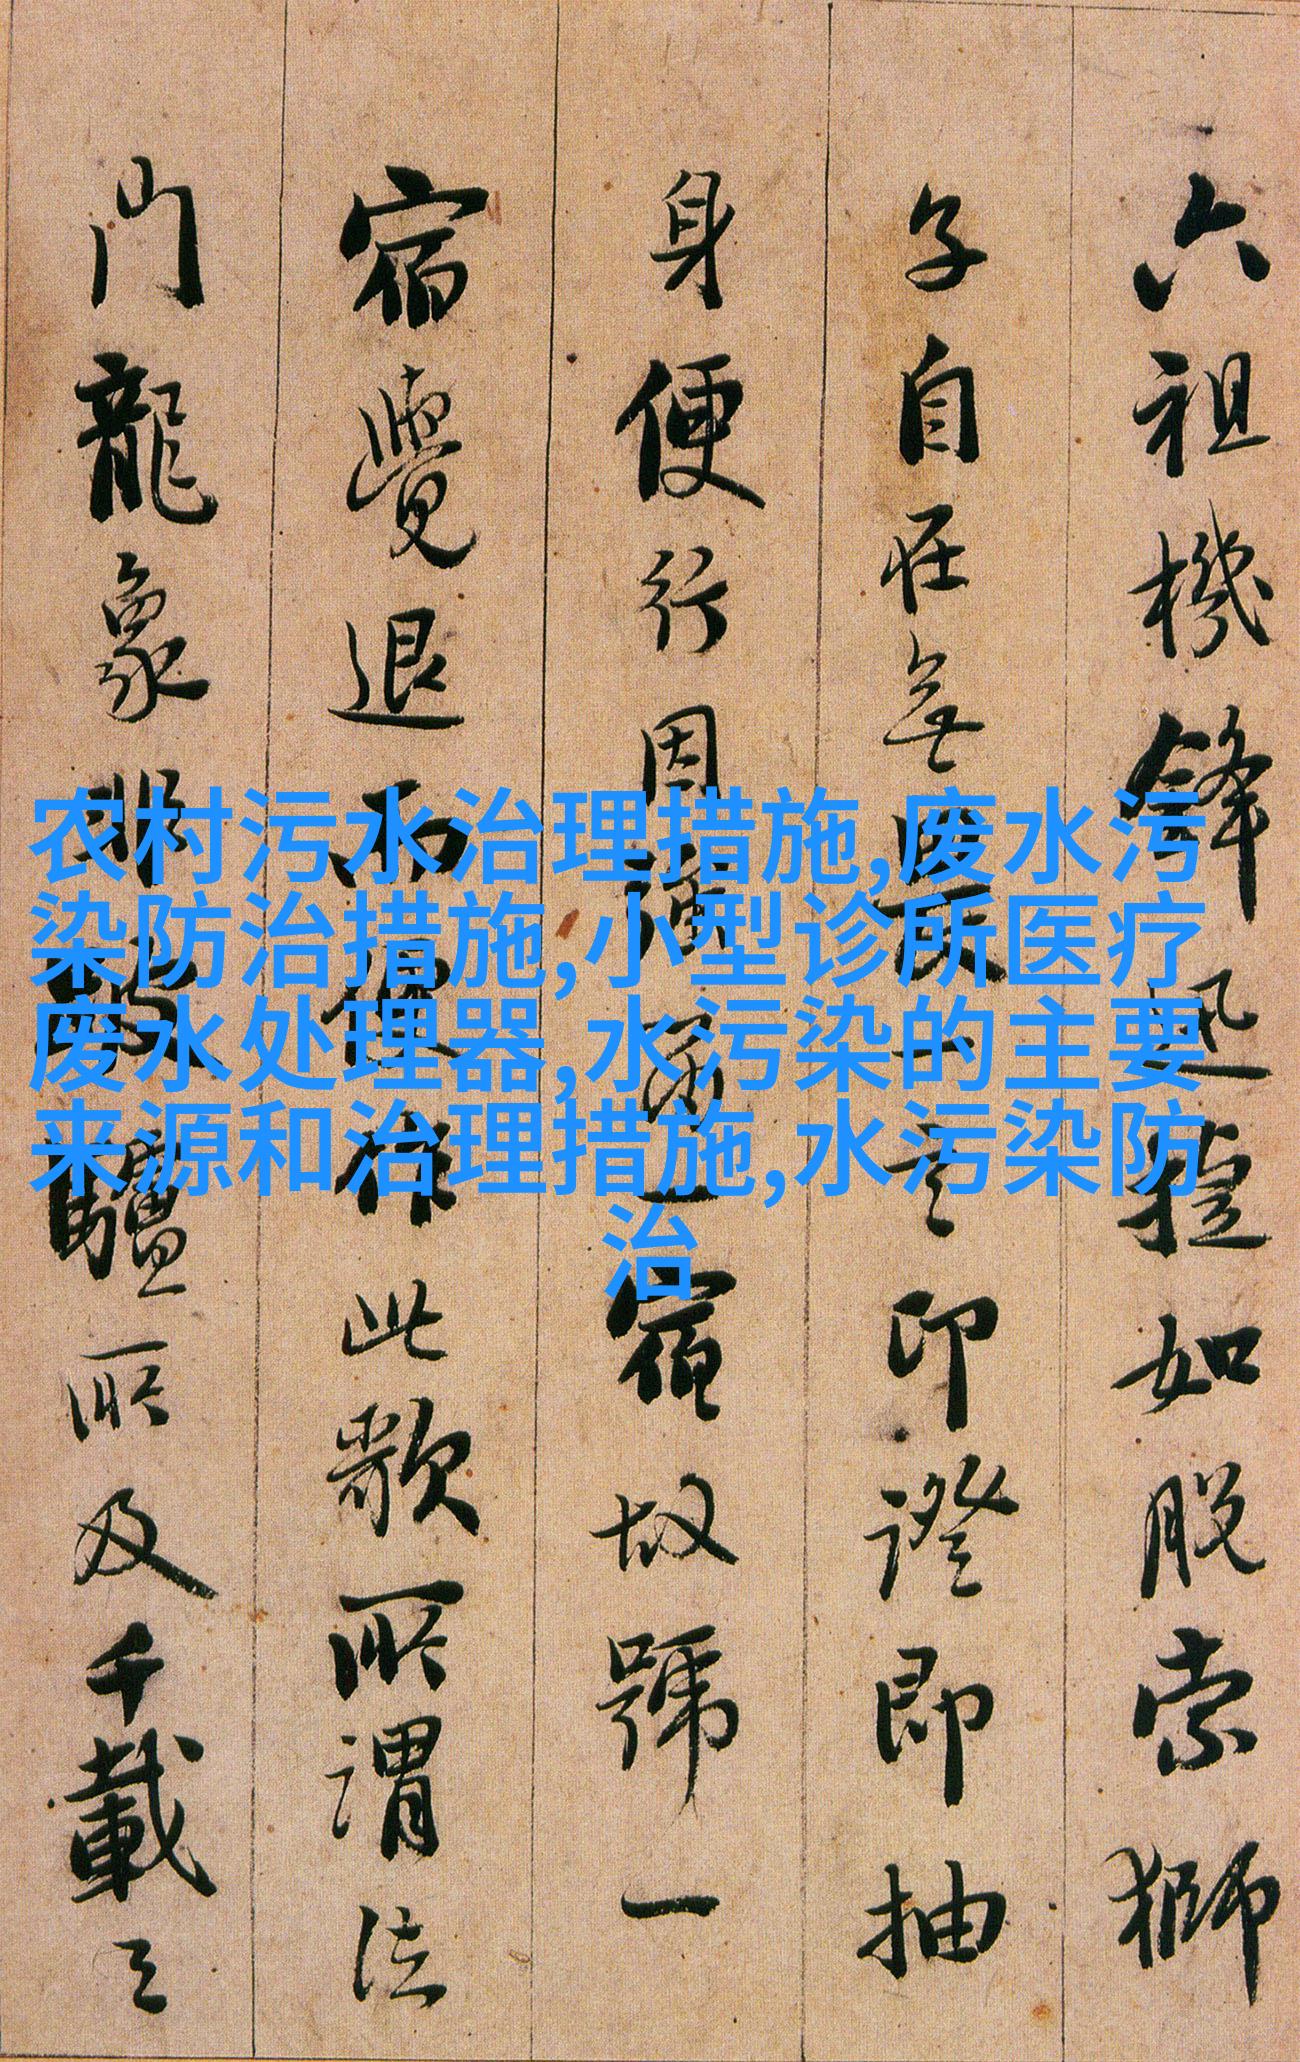 六祖機鋒迅捷如脫索獅
子自在無畏一言印證即抽
身便行因強留一宿故號一
宿覺退而作此歌所謂法
門龍象非跛驢所及千載之
农村污水治理措施,废水污
染防治措施,小型诊所医疗
废水处理器,水污染的主要
来源和治理措施,水污染防
治